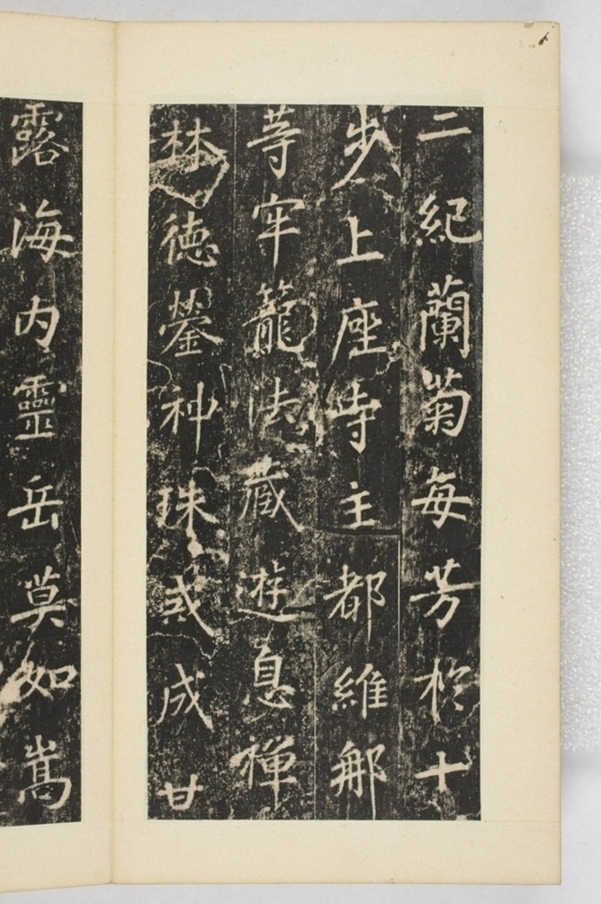 二紀蘭菊每芳於十
步上座寺主都維那
等牢籠法藏遊息禪
林德鎣神珠或成甘
露海内靈岳莫如嵩